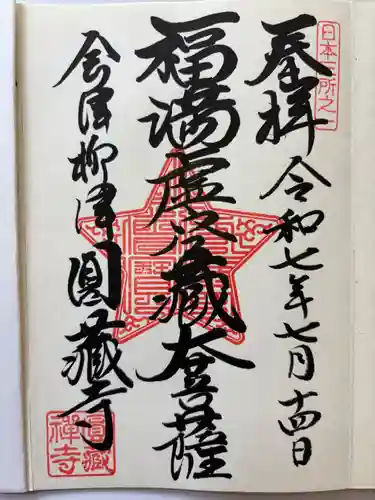 日本三所之一
奉拝
令和七年七月十四日
福満虚空藏菩薩
会津柳津圓藏寺
圓藏禅寺